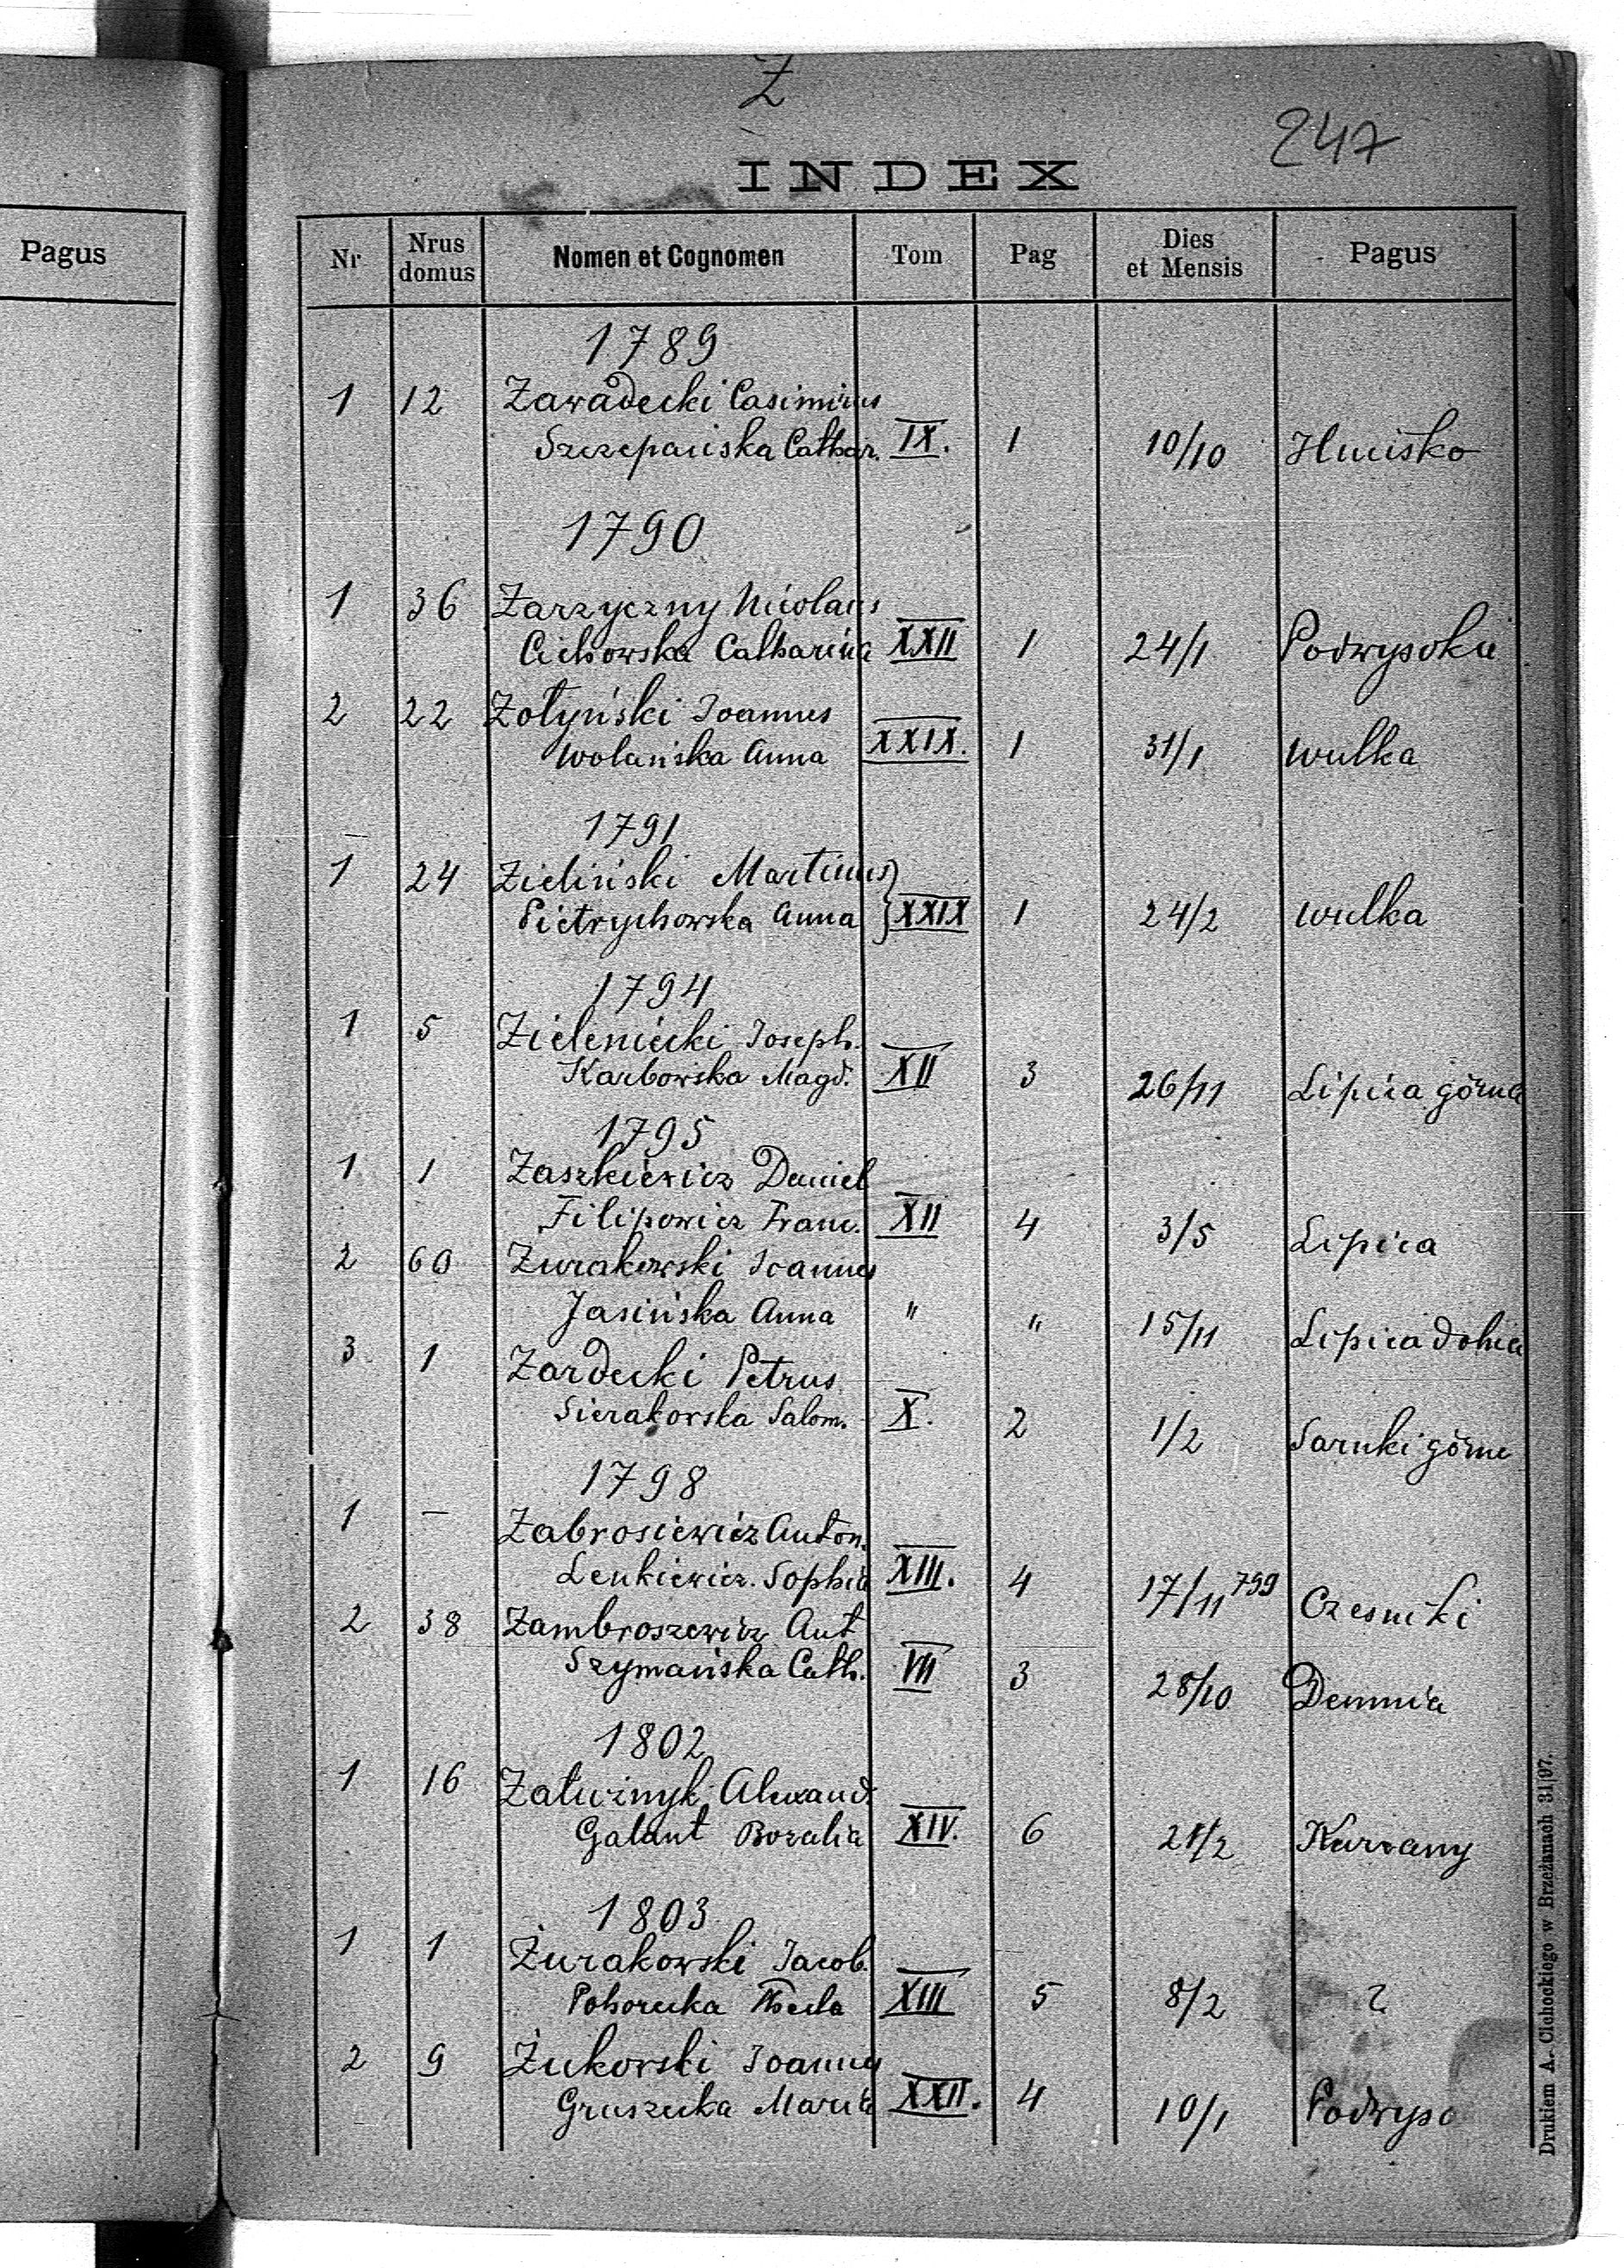 Pagus
Z
247
INDEX
Nr Nrus domus Nomen et Cognomen Tom Pag Dies et Mensis Pagus
1789
1 12 Zawadecki Casimirus
Szczepańska Cathar. IX. 1 10/10 Hinisko
1790
1 36 Zarzyczny Nicolaus
Cichowska Catharina XXII 1 24/1 Podwysokie
2 22 Zołyński Joannes
Wolańska Anna XXIX. 1 31/1 Wulka
1791
1 24 Zieliński Martinus
Pietrychowska Anna XXIX 1 24/2 Wulka
1794
1 5 Zieleniecki Joseph.
Karbowska Magd. XII 3 26/11 Lipica górna
1795
1 1 Zaszkiewicz Daniel
Filipowicz Franc. XII 4 3/5 Lipica
2 60 Zurakowski Joannes
Jasińska Anna " " 15/11 Lipica dolna
3 1 Zardecki Petrus
Sierakowska Salom. X. 2 1/2 Sarnki górne
1798
1 — Zabrosiewicz Anton.
Lenkiewicz Sophia XIII. 4 17/11 799 Czesniki
2 38 Zambroszewicz Ant
Szymańska Cath. VII 3 28/10 Demnia
1802
1 16 Alexand.
Galant Rozalia XIV. 6 21/2 Kurzany
1803
1 1 Żurakowski Jacob.
Pohorecka Thecla XIII 5 8/2 ?
2 9 Żukowski Joannes
Gruszecka Maria XXII. 4 10/1 Podwyso
Drukiem A. Cichockiego w Brzeżanach 31/07.